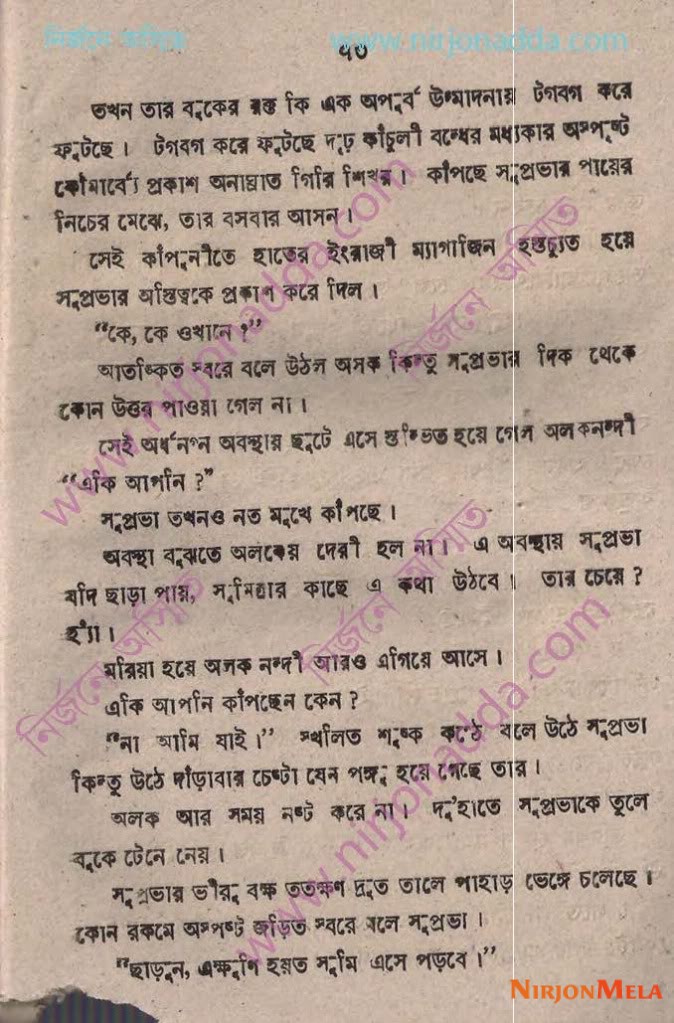 নির্জনে অসিতে www.nirjonadda.com
৭৩
তখন তার বুকের রক্ত কি এক অপূর্ব উন্মাদনায় টগবগ করে
ফুটছে। টগবগ করে ফুটছে দৃঢ় কাঁচুলী বন্ধের মধ্যকার অস্পষ্ট
কৌমার্যে প্রকাশ অনাঘ্রাত গিরি শিখর। কাঁপছে সুপ্রভার পায়ের
নিচের মেঝে, তার বসবার আসন।
সেই কাঁপুনীতে হাতের ইংরাজী ম্যাগাজিন হস্তচ্যুত হয়ে
সুপ্রভার অস্তিত্বকে প্রকাশ করে দিল।
“কে, কে ওখানে?”
আতঙ্কিত স্বরে বলে উঠল অলক কিন্তু সুপ্রভার দিক থেকে
কোন উত্তর পাওয়া গেল না।
সেই অর্ধনগ্ন অবস্থায় ছুটে এসে স্তম্ভিত হয়ে গেল অলকনন্দী
“একি আপনি?”
সুপ্রভা তখনও নত মুখে কাঁপছে।
অবস্থা বুঝতে অলকের দেরী হল না। এ অবস্থায় সুপ্রভা
যদি ছাড়া পায়, সুমিত্রার কাছে এ কথা উঠবে। তার চেয়ে?
হ্যাঁ।
মরিয়া হয়ে অলক নন্দী আরও এগিয়ে আসে।
একি আপনি কাঁপছেন কেন?
“না আমি যাই।” স্খলিত শুষ্ক কণ্ঠে বলে উঠে সুপ্রভা
কিন্তু উঠে দাঁড়াবার চেষ্টা যেন পঙ্গু হয়ে গেছে তার।
অলক আর সময় নষ্ট করে না। দু’হাতে সুপ্রভাকে তুলে
বুকে টেনে নেয়।
সুপ্রভার ভীরু বক্ষ ততক্ষণ দ্রুত তালে পাহাড় ভেঙ্গে চলেছে।
কোন রকমে অস্পষ্ট জড়িত স্বরে বলে সুপ্রভা।
“ছাড়ুন, এক্ষুণি হয়ত সুমি এসে পড়বে।”
NIRJONMELA